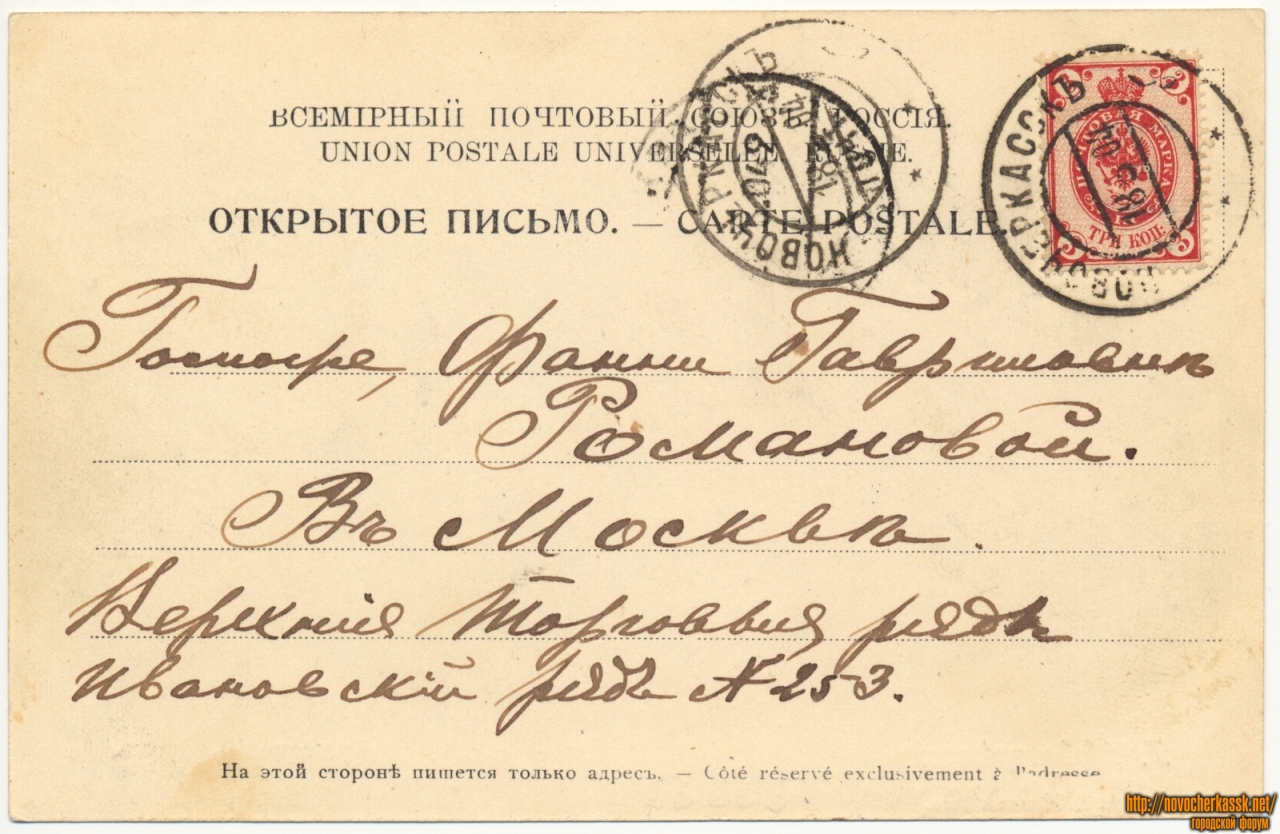 ВСЕМІРНЫЙ ПОЧТОВЫЙ СОЮЗЪ РОССІЯ.
UNION POSTALE UNIVERSELLE RUSSIE.
ОТКРЫТОЕ ПИСЬМО. — CARTE POSTALE.
НОВОЧЕРКАССКЪ
НОВОЧЕРКАССКЪ
ПОЧТОВАЯ МАРКА
3 3
ТРИ КОП.
3 3
Госпоже, Фанни Гавриловнѣ
Романовой.
Въ Москвѣ.
Верхнія Торговыя ряды
Ивановскій рядъ № 253.
На этой сторонѣ пишется только адресъ. — Côté réservé exclusivement à l'adresse
http://novocherkassk.net/
городской форум